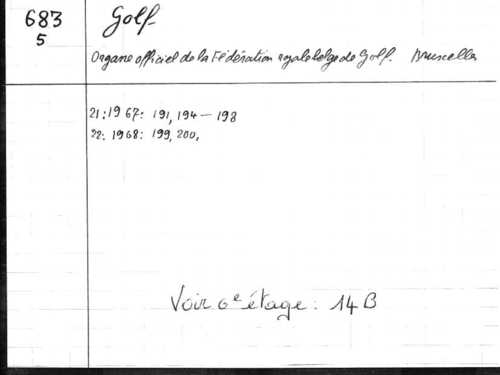 683
5
Golf.
Organe officiel de la Fédération royale belge de Golf. Bruxelles
21: 1967: 191, 194 — 198
22: 1968: 199, 200,
Voir 6e étage: 14 B